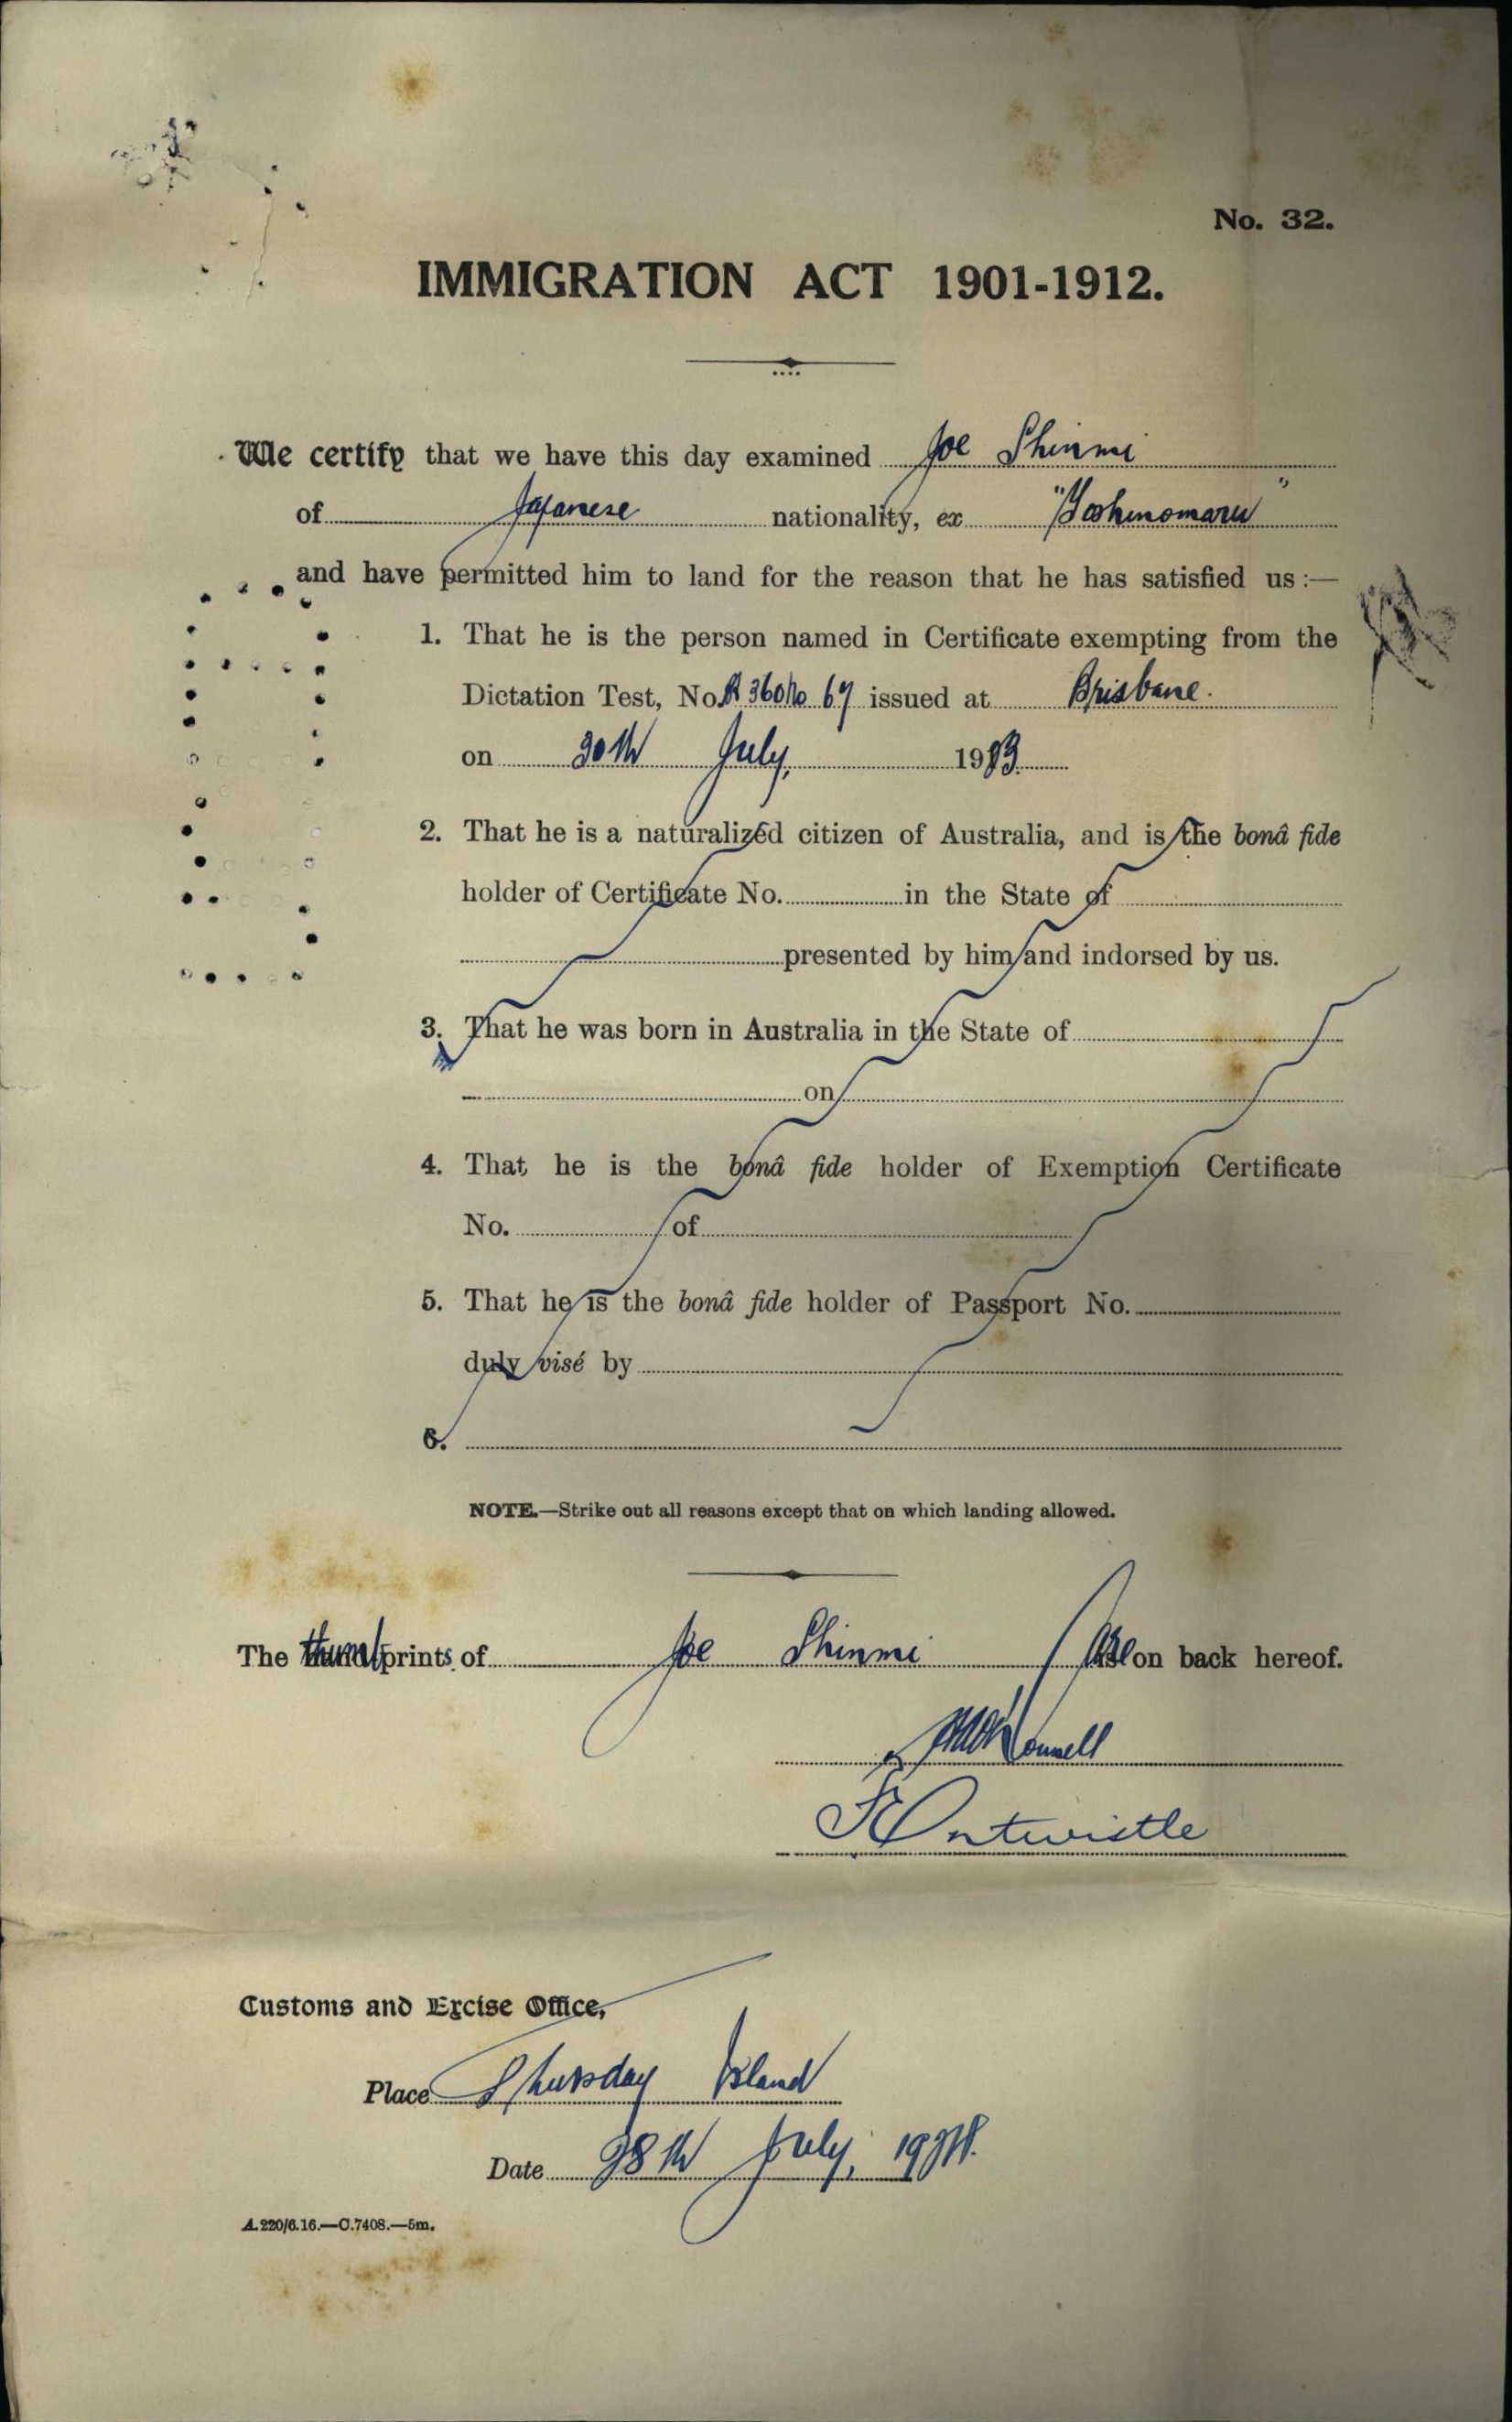 No. 32.
IMMIGRATION ACT 1901-1912.
We certify that we have this day examined Joe Shinmi
of Japanese nationality, ex "Yoshinomaru"
and have permitted him to land for the reason that he has satisfied us :—
1. That he is the person named in Certificate exempting from the
Dictation Test, No. 360/No 67 issued at Brisbane.
on 30th July, 19
2. That he is a naturalized citizen of Australia, and is the bonâ fide
holder of Certificate No. in the State of
presented by him and indorsed by us.
3. That he was born in Australia in the State of
on
4. That he is the bonâ fide holder of Exemption Certificate
No. of
5. That he is the bonâ fide holder of Passport No.
duly visé by
6.
NOTE.—Strike out all reasons except that on which landing allowed.
The thumbprints of Joe Shinmi are on back hereof.
F Entwistle
Customs and Excise Office,
Place Thursday Island
Date 28th July, 19
A.220/6.16.—C.7408.—5m.